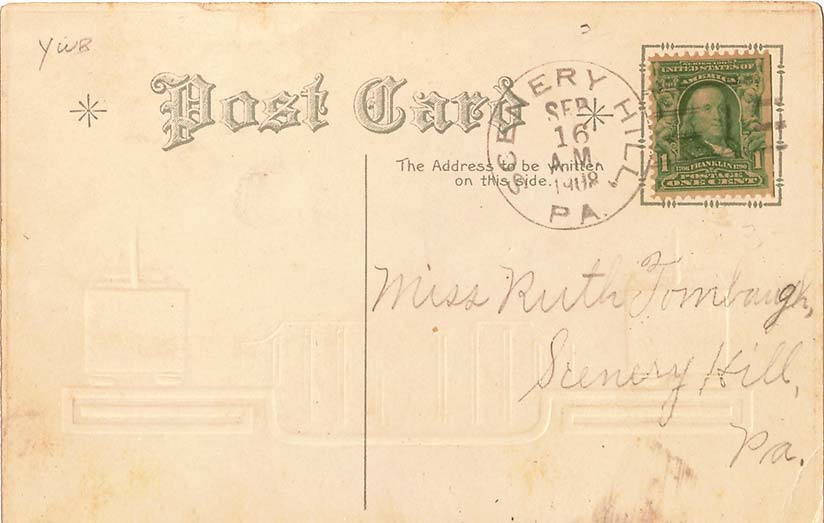 YWB
Post Card
The Address to be written
on this side.
SCENERY HILL,
SEP
16
A.M.
1908
PA.
SERIES 1902
UNITED STATES OF
AMERICA
1 1706 FRANKLIN 1790 1
POSTAGE
ONE CENT
Miss Ruth Tombaugh,
Scenery Hill,
Pa.